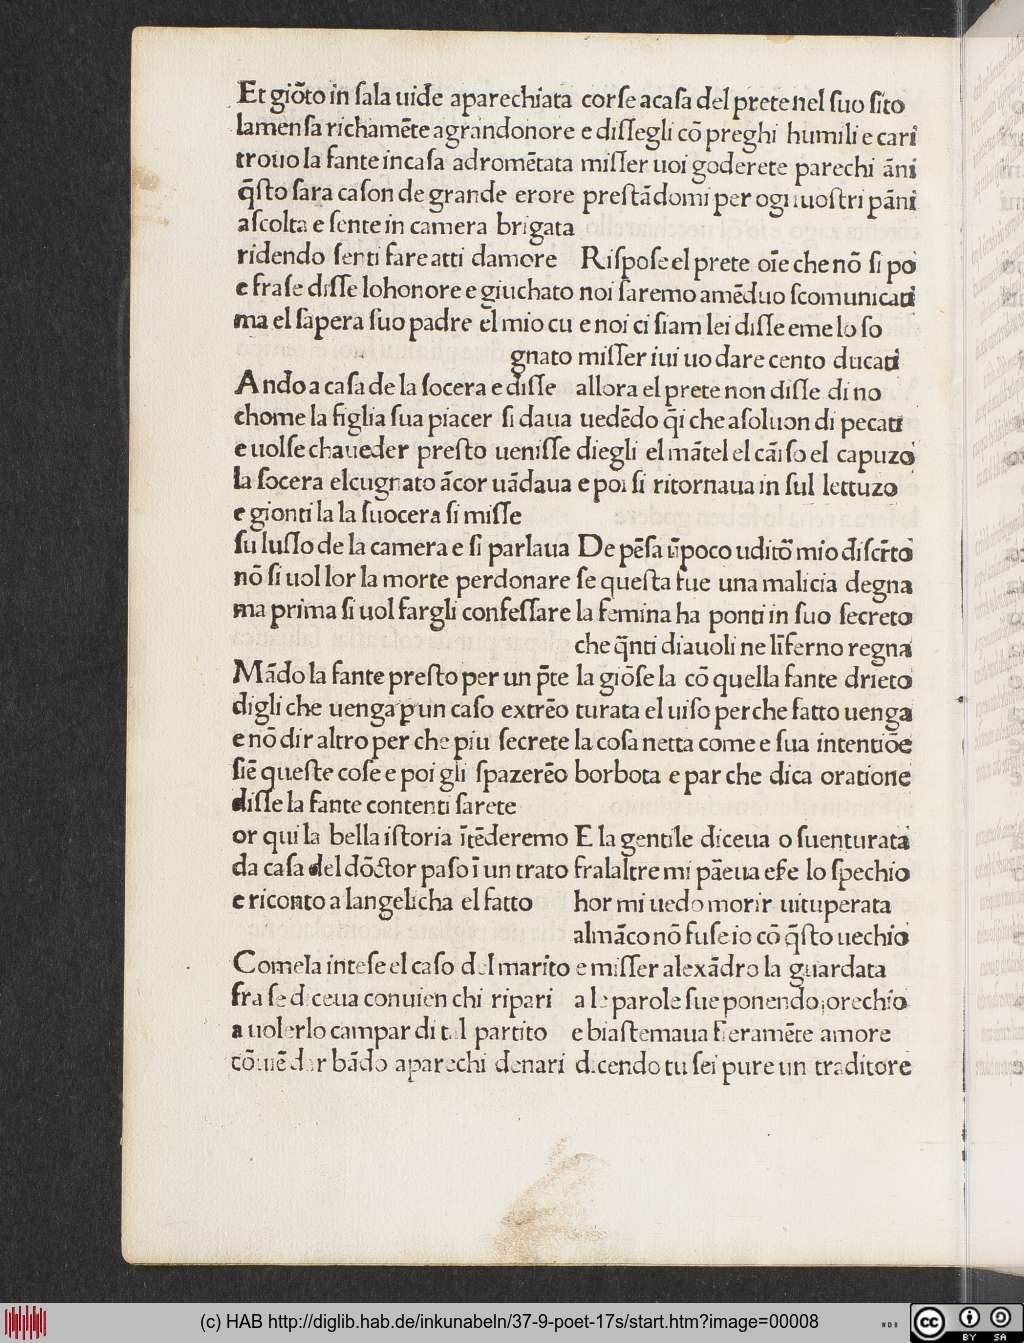 Et giōto in ſala uide aparechiata
la menſa richamēte a grandonore
trouo la fante in caſa adromētata
q̄ſto ſara caſon de grande erore
aſcolta e ſente in camera brigata
ridendo ſenti fare atti damore
e fra ſe diſſe lohonore e giuchato
ma el ſapera ſuo padre el mio cu
gnato
Ando a caſa de la ſocera e diſſe
chome la figlia ſua piacer ſi daua
e uolſe cha ueder preſto ueniſſe
la ſocera el cugnato ācor uādaua
e gionti la la ſuocera ſi miſſe
ſu luſſo de la camera e ſi parlaua
nō ſi uol lor la morte perdonare
ma prima ſi uol fargli confeſſare
Mādo la fante preſto per un p̄te
digli che uenga p un caſo extrēo
e nō dir altro per che piu ſecrete
ſiē queſte coſe e poi gli ſpazerēo
diſſe la fante contenti ſarete
or qui la bella iſtoria ītēderemo
da caſa del dōctor paſo ī un trato
e riconto a langelicha el fatto
Come la inteſe el caſo del marito
fra ſe diceua conuien chi ripari
a uolerlo campar di tal partito
cōuiē dar bādo aparechi denari
corſe a caſa del prete nel ſuo ſito
e diſſegli cō preghi humili e cari
miſſer uoi goderete parechi āni
preſtādomi per ogi uoſtri pāni
Riſpoſe el prete oīe che nō ſi po
noi ſaremo amēduo ſcomunicati
e noi ci ſiam lei diſſe eme lo ſo
miſſer iui uo dare cento ducati
allora el prete non diſſe di no
uedēdo q̄i che aſoluon di pecati
diegli el mātel el cāiſo el capuzo
e poi ſi ritornaua in ſul lettuzo
De pēſa ū poco uditō mio diſcr̄to
ſe queſta fue una malicia degna
la femina ha ponti in ſuo ſecreto
che q̄nti diauoli ne līferno regna
la giōſe la cō quella fante drieto
turata el uiſo perche fatto uenga
la coſa netta come e ſua intentiōe
borbota e par che dica oratione
E la gentile diceua o ſuenturata
fralaltre mi pāeua eſſe lo ſpechio
hor mi uedo morir uituperata
almāco nō fuſe io cō q̄ſto uechio
e miſſer alexādro la guardata
a le parole ſue ponendo orechio
e biaſtemaua fieramēte amore
dicendo tu ſei pure un traditore
(c) HAB http://diglib.hab.de/inkunabeln/37-9-poet-17s/start.htm?image=00008
cc BY SA